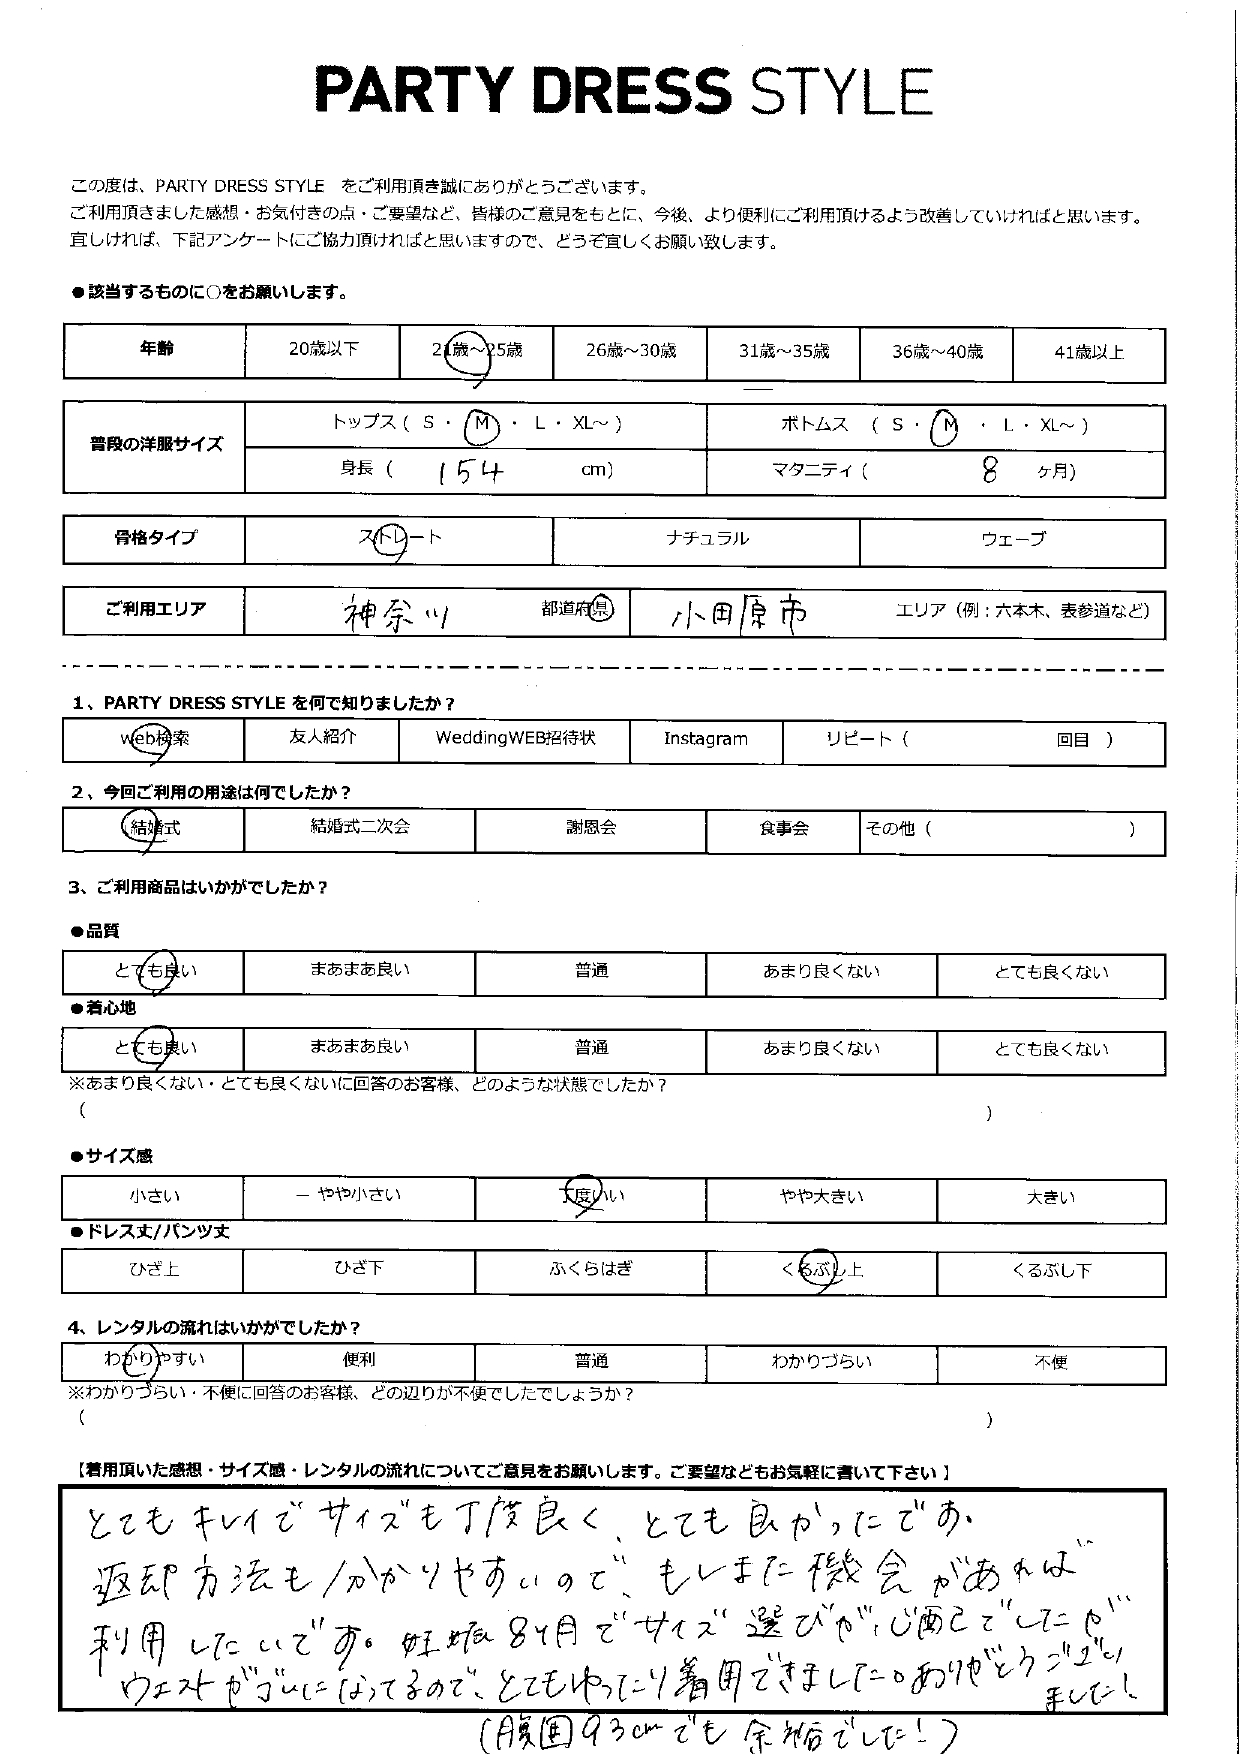 PARTY DRESS STYLE
この度は、PARTY DRESS STYLE をご利用頂き誠にありがとうございます。
ご利用頂きました感想・お気付きの点・ご要望など、皆様のご意見をもとに、今後、より便利にご利用頂けるよう改善していければと思います。
宜しければ、下記アンケートにご協力頂ければと思いますので、どうぞ宜しくお願い致します。
●該当するものに○をお願いします。
年齢 20歳以下 21歳～25歳 26歳～30歳 31歳～35歳 36歳～40歳 41歳以上
普段の洋服サイズ トップス ( S ・ M ・ L ・ XL～ ) ボトムス ( S ・ M ・ L ・ XL～ )
身長 ( 154 cm) マタニティ ( 8 ヶ月)
骨格タイプ ストレート ナチュラル ウェーブ
ご利用エリア 神奈川 都道府県 小田原市 エリア（例：六本木、表参道など）
1、PARTY DRESS STYLE を何で知りましたか？
web検索 友人紹介 WeddingWEB招待状 Instagram リピート ( 回目 )
2、今回ご利用の用途は何でしたか？
結婚式 結婚式二次会 謝恩会 食事会 その他 ( )
3、ご利用商品はいかがでしたか？
●品質
とても良い まあまあ良い 普通 あまり良くない とても良くない
●着心地
とても良い まあまあ良い 普通 あまり良くない とても良くない
※あまり良くない・とても良くないに回答のお客様、どのような状態でしたか？
( )
●サイズ感
小さい やや小さい 丁度いい やや大きい 大きい
●ドレス丈/パンツ丈
ひざ上 ひざ下 ふくらはぎ くるぶし上 くるぶし下
4、レンタルの流れはいかがでしたか？
わかりやすい 便利 普通 わかりづらい 不便
※わかりづらい・不便に回答のお客様、どの辺りが不便でしたでしょうか？
( )
【着用頂いた感想・サイズ感・レンタルの流れについてご意見をお願いします。ご要望などもお気軽に書いて下さい 】
とてもキレイでサイズも丁度良く、とても良かったです。
返却方法も分かりやすいので、もしまた機会があれば
利用したいです。妊娠8ヶ月でサイズ選びが心配でしたが
ウエストがゴムになってるので、とてもゆったり着用できました。ありがとうござい
ました！
(腹囲93cmでも余裕でした！)